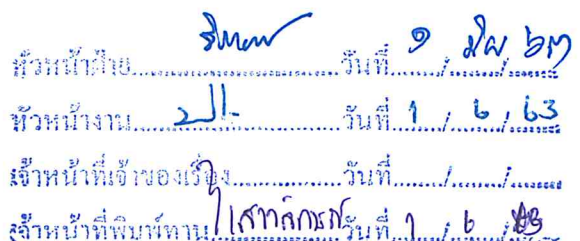 หัวหน้าฝ่าย.................... วันที่ ๑ / มิย / ๖๓
หัวหน้างาน.................... วันที่ 1 / 6 / 63
เจ้าหน้าที่เจ้าของเรื่อง.................... วันที่ ...... / ...... / ......
เจ้าหน้าที่พิมพ์ทาน เสาวลักษณ์ วันที่ 1 / 6 / 63